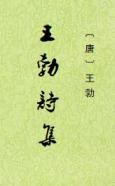 〔唐〕王勃
王勃詩集